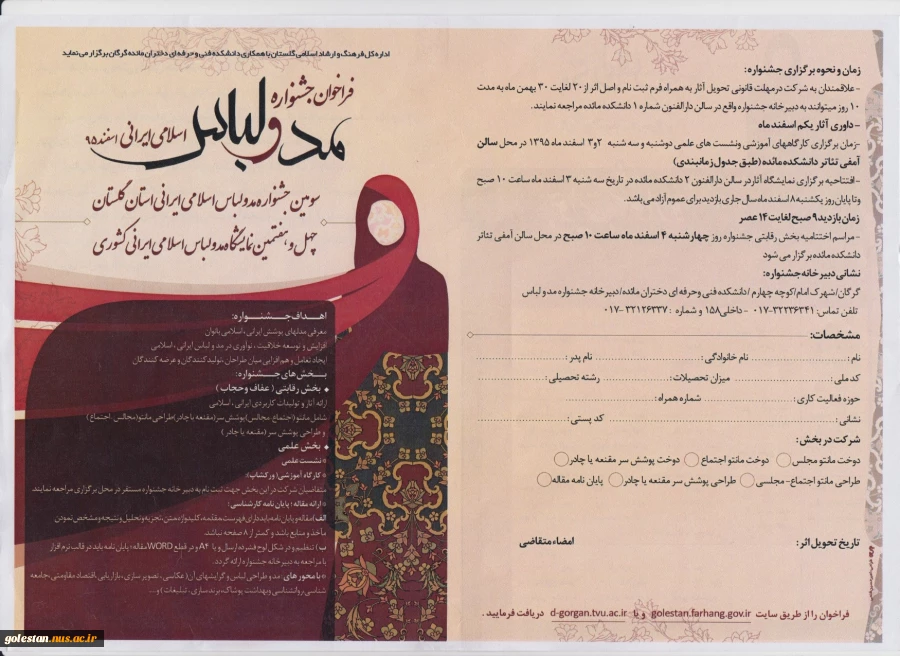 اداره کل فرهنگ و ارشاد اسلامی گلستان با همکاری دانشکده فنی و حرفه ای دختران مائده گرگان برگزار می نماید
فراخوان جشنواره
مد و لباس
اسلامی ایرانی اسفند ۹۵
سومین جشنواره مد و لباس اسلامی ایرانی استان گلستان
چهل و هفتمین نمایشگاه مد و لباس اسلامی ایرانی کشوری
اهداف جشنواره:
معرفی مدلهای پوشش ایرانی، اسلامی بانوان
افزایش و توسعه خلاقیت، نوآوری در مد و لباس ایرانی، اسلامی
ایجاد تعامل و هم افزایی میان طراحان، تولیدکنندگان و عرضه کنندگان
بخش های جشنواره:
بخش رقابتی ( عفاف و حجاب )
ارائه آثار و تولیدات کاربردی ایرانی، اسلامی
شامل مانتو (اجتماع- مجالس) پوشش سر (مقنعه یا چادر) طراحی مانتو (مجالس، اجتماع)
و طراحی پوشش سر (مقنعه یا چادر )
بخش علمی
* نشست علمی
* کارگاه آموزشی( ورکشاپ)*
متقاضیان شرکت در این بخش جهت ثبت نام به دبیرخانه جشنواره مستقر در محل برگزاری مراجعه نمایند.
* ارائه مقاله ؛ پایان نامه کارشناسی:
الف) مقاله و پایان نامه باید دارای فهرست، مقدمه، کلیدواژه متن، تجزیه و تحلیل و نتیجه و مشخص نمودن
مأخذ و منابع باشد و کمتر از ۸ صفحه نباشد.
ب) تنظیم و در شکل لوح فشرده ارسال و یا A۴ و در قطع WORD مقاله؛ پایان نامه باید در قالب نرم افزار
با مراجعه به دبیرخانه جشنواره ارائه گردد.
* با محورهای: مد و طراحی لباس و گرایشهای آن( عکاسی، تصویر سازی، بازاریابی، اقتصاد مقاومتی، جامعه
شناسی روانشناسی و بهداشت پوشاک، برندسازی، تبلیغات و ...
زمان و نحوه برگزاری جشنواره:
-علاقمندان به شرکت در مهلت قانونی تحویل آثار به همراه فرم ثبت نام و اصل اثر از ۲۰ لغایت ۳۰ بهمن ماه به مدت
۱۰ روز میتوانند به دبیرخانه جشنواره واقع در سالن دارالفنون شماره ۱ دانشکده مائده مراجعه نمایند.
-داوری آثار یکم اسفندماه
-زمان برگزاری کارگاههای آموزشی و نشست های علمی دوشنبه و سه شنبه ۲و۳ اسفند ماه ۱۳۹۵ در محل سالن
آمفی تئاتر دانشکده مائده (طبق جدول زمانبندی)
-افتتاحیه برگزاری نمایشگاه آثار در سالن دارالفنون ۲ دانشکده مائده در تاریخ سه شنبه ۳ اسفند ماه ساعت ۱۰ صبح
و تا پایان روز یکشنبه ۸ اسفند ماه سال جاری بازدید برای عموم آزاد می باشد.
زمان بازدید ۹ صبح لغایت ۱۴ عصر
-مراسم اختتامیه بخش رقابتی جشنواره روز چهارشنبه ۴ اسفند ماه ساعت ۱۰ صبح در محل سالن آمفی تئاتر
دانشکده مائده برگزار می شود
نشانی دبیرخانه جشنواره:
گرگان/شهرک امام/کوچه چهارم /دانشکده فنی و حرفه ای دختران مائده/دبیرخانه جشنواره مد و لباس
تلفن تماس: ۳۲۲۳۶۳۴۱-۰۱۷ - داخلی۱۵۸ و شماره : ۳۲۱۲۶۳۳۷ -۰۱۷
مشخصات:
نام: نام خانوادگی: نام پدر:
کدملی: میزان تحصیلات: رشته تحصیلی:
حوزه فعالیت کاری: شماره همراه:
نشانی: کد پستی:
شرکت در بخش:
دوخت مانتو مجلس دوخت مانتو اجتماع دوخت پوشش سر مقنعه یا چادر
طراحی مانتو اجتماع- مجلسی طراحی پوشش سر مقنعه یا چادر پایان نامه مقاله
تاریخ تحویل اثر: امضاء متقاضی
فراخوان را از طریق سایت golestan.farhang.gov.ir و یا d-gorgan.tvu.ac.ir دریافت فرمایید .
golestan.nus.ac.ir